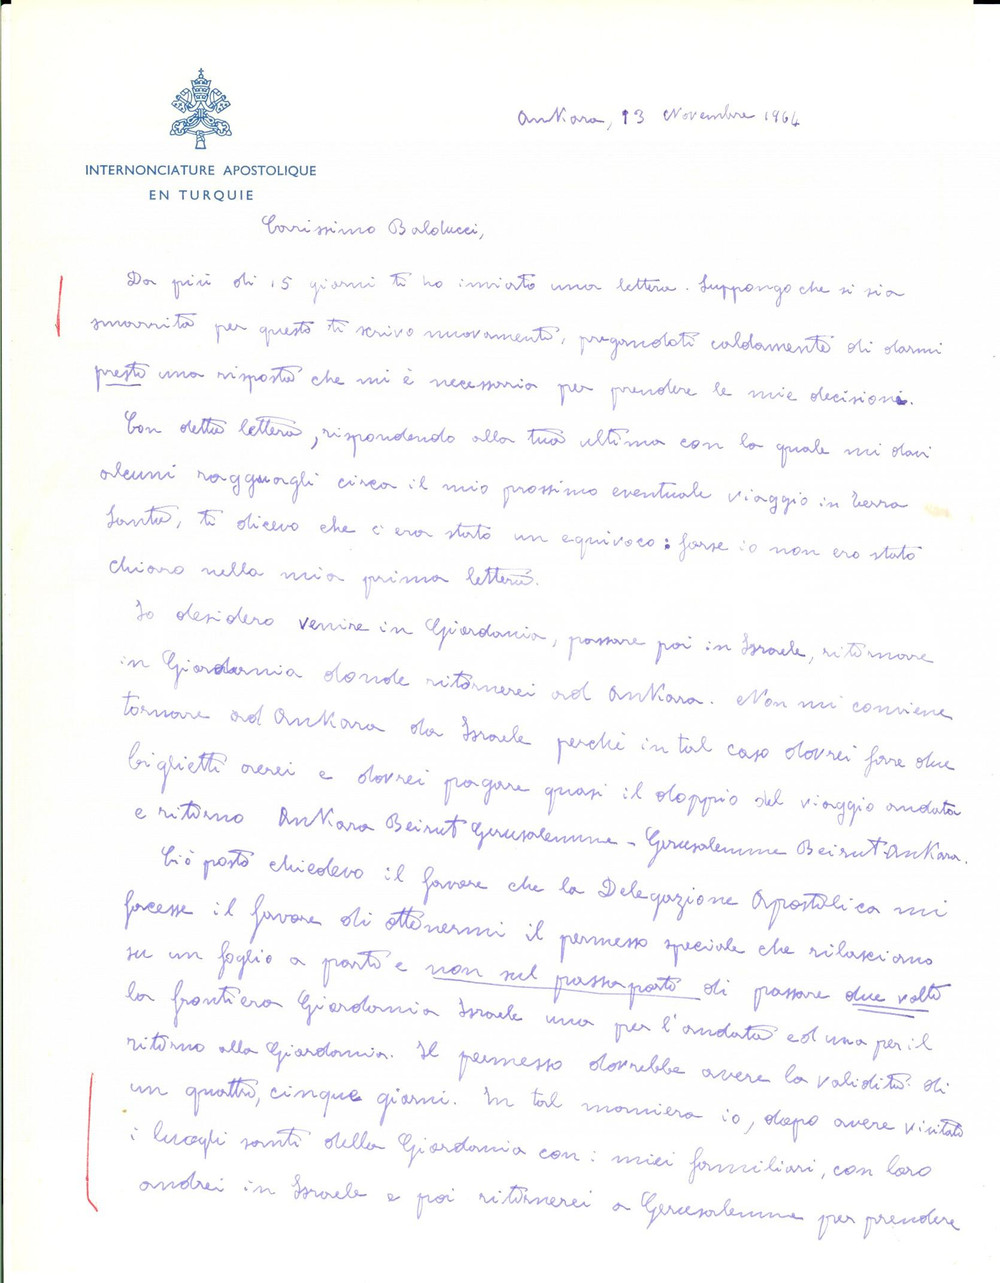 Ankara, 13 Novembre 1964
INTERNONCIATURE APOSTOLIQUE
EN TURQUIE
Carissimo Balducci,
Da più di 15 giorni ti ho inviato una lettera. Suppongo che si sia
smarrita per questo ti scrivo nuovamente, pregandoti caldamente di darmi
presto una risposta che mi è necessaria per prendere le mie decisioni.
Con detta lettera, rispondendo alla tua ultima con la quale mi davi
alcuni ragguagli circa il mio prossimo eventuale viaggio in Terra
Santa, ti dicevo che c'era stato un equivoco: forse io non ero stato
chiaro nella mia prima lettera.
Io desidero venire in Giordania, passare poi in Israele, ritornare
in Giordania donde ritornerei ad Ankara. Non mi conviene
tornare ad Ankara da Israele perché in tal caso dovrei fare due
biglietti aerei e dovrei pagare quasi il doppio del viaggio andata
e ritorno Ankara Beirut Gerusalemme - Gerusalemme Beirut-Ankara.
Ciò posto chiedevo il favore che la Delegazione Apostolica mi
facesse il favore di ottenermi il permesso speciale che rilasciano
su un foglio a parte e non sul passaporto di passare due volte
la frontiera Giordania Israele una per l'andata ed una per il
ritorno alla Giordania. Il permesso dovrebbe avere la validità di
un quattro, cinque giorni. In tal maniera io, dopo avere visitato
i luoghi santi della Giordania con i miei familiari, con loro
andrei in Israele e poi ritornerei a Gerusalemme per prendere